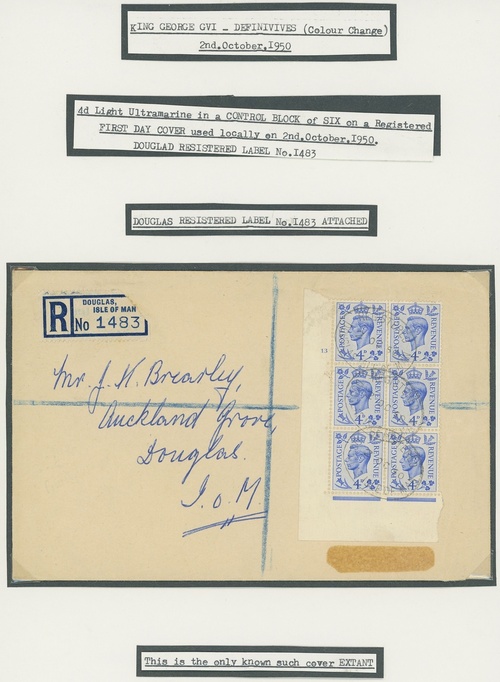 KING GEORGE GVI - DEFINIVIVES (Colour Change)
2nd.October.1950
4d Light Ultramarine in a CONTROL BLOCK of SIX on a Registered
FIRST DAY COVER used locally on 2nd.October.1950.
DOUGLAD RESISTERED LABEL No.I483
DOUGLAS RESISTERED LABEL No.I483 ATTACHED
R
DOUGLAS,
ISLE OF MAN
No 1483
Mr. J. H. Brearley,
Auckland Grove,
Douglas.
I.o.M
13
POSTAGE REVENUE 4D
POSTAGE REVENUE 4D
POSTAGE REVENUE 4D
POSTAGE REVENUE 4D
POSTAGE REVENUE 4D
POSTAGE REVENUE 4D
This is the only known such cover EXTANT